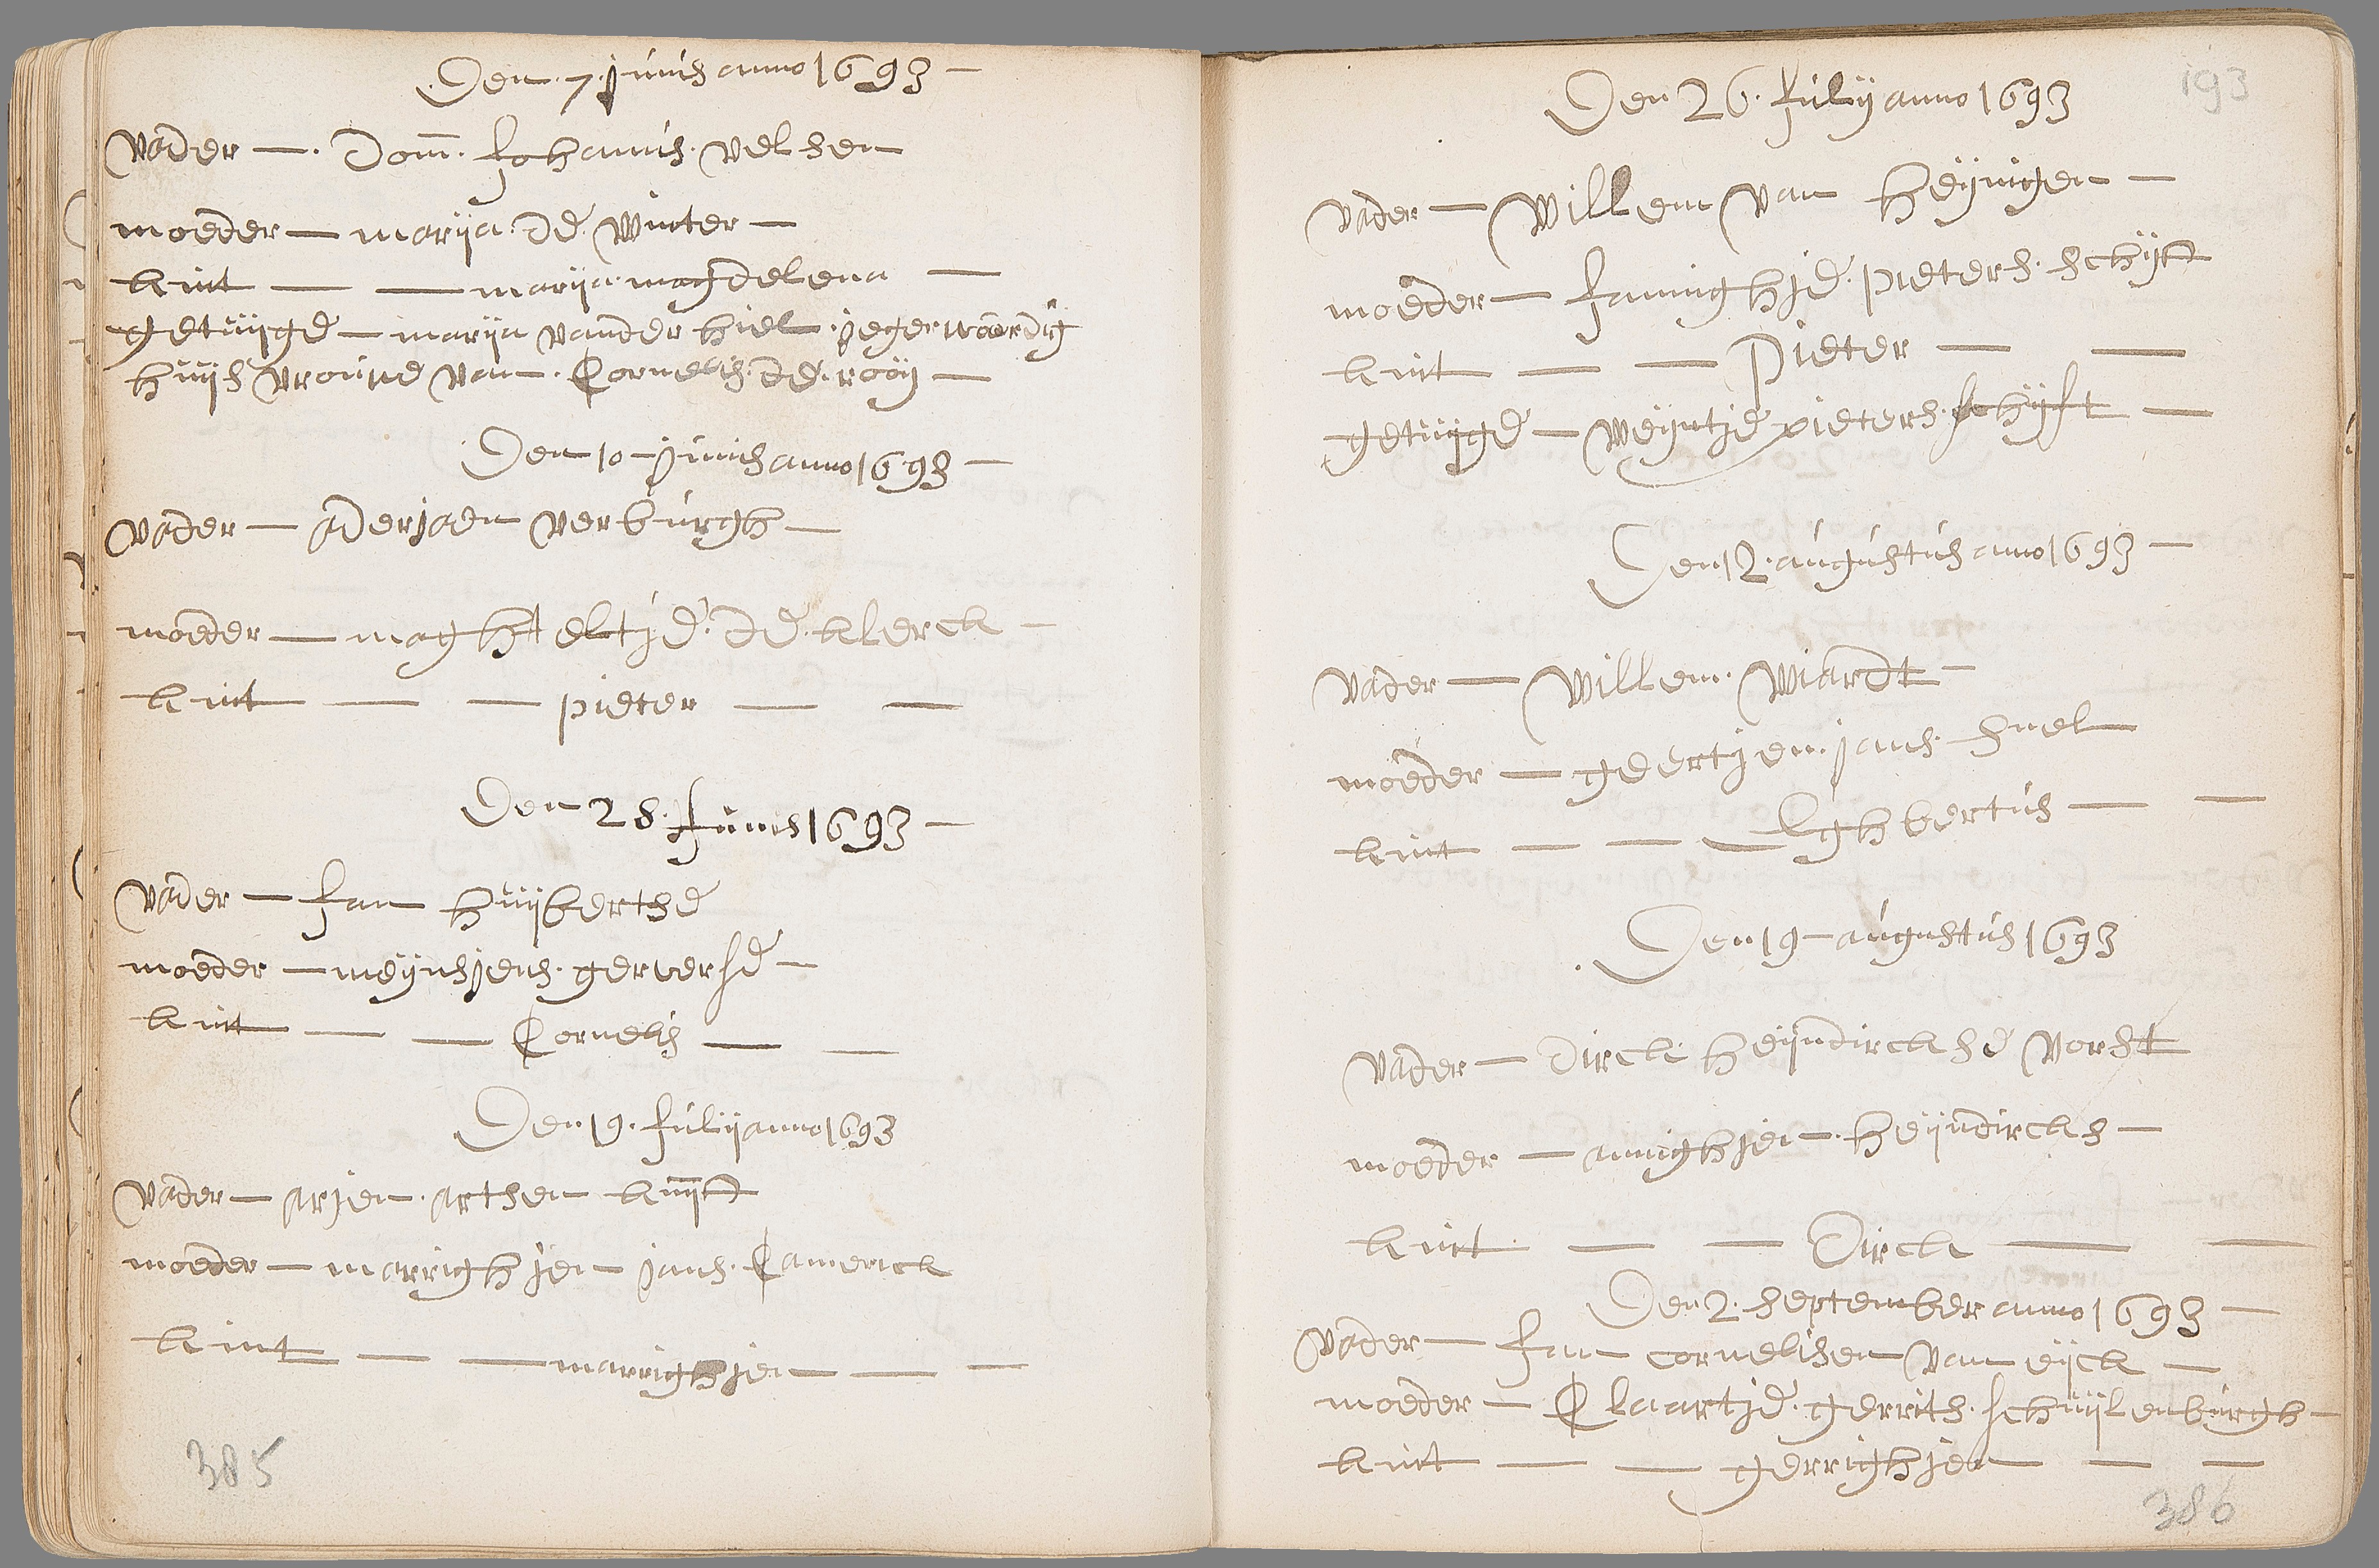 Den 7 junis anno 1693 —
vader — Dom. Johannis velsen
moeder — marija de Winter —
kint — — marija magdelena —
getuijge — marija vander hiel jegerwoordig
huijsvrouwe van Cornelis de rooij —
Den 10 junis anno 1693 —
vader — aderjaen verburgh —
moeder — maghteltje de klerck —
kint — — pieter — —
Den 28 Junis 1693 —
vader — Jan huijbertse
moeder — meijnsjens gerverse —
kint — — Cornelis — —
Den 19 Julij anno 1693
vader — arjen artsen kuijft
moeder — marrighjen jans Camerick
kint — — marrighjen — —
385
193
Den 26 Julij anno 1693
vader — Willem van heijnigen —
moeder — Jannighje pieters schijft
kint — — Pieter — —
getuijge — Weijntje pieters schijft —
Den 12 augustus anno 1693 —
vader — Willem Wiardt —
moeder — geertjen jans snel
kint — — Eghbertus — —
Den 19 augustus 1693
vader — Dirck heijndirckse vorst
moeder — annighjen heijndircks —
kint — — Dirck — —
Den 2 september anno 1693 —
vader — Jan cornelisen van eijck —
moeder — Claartje gerrits schuijlenburgh —
kint — — gerrighjen — —
386